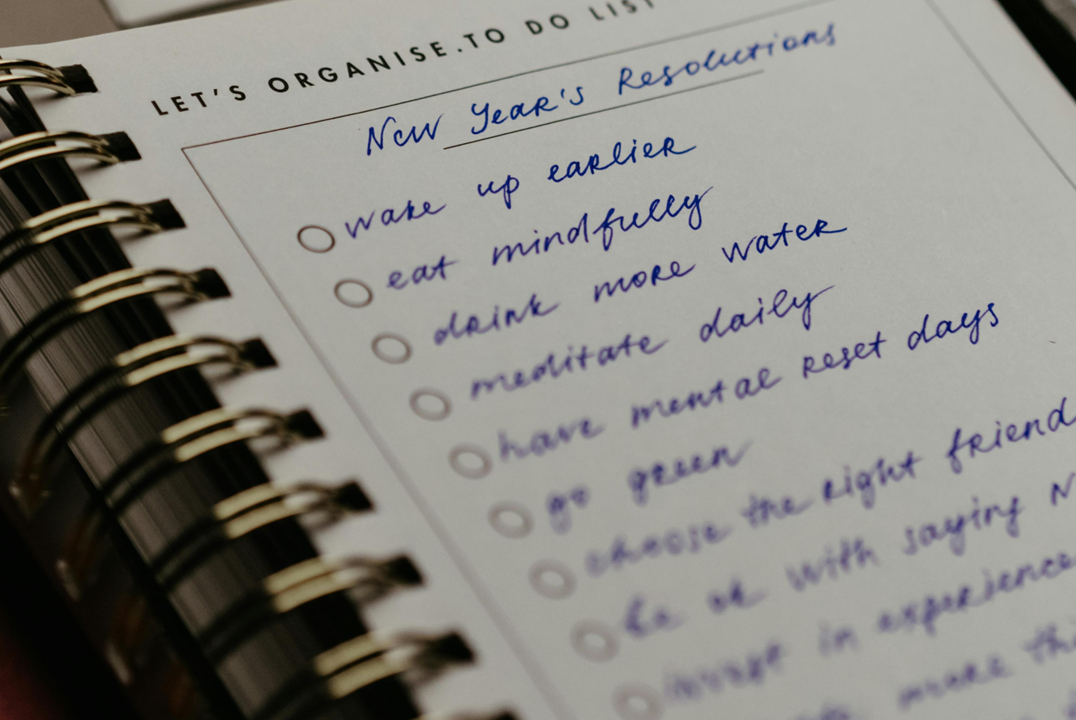 LET'S ORGANISE. TO DO LIST
New Year's Resolutions
wake up earlier
eat mindfully
drink more water
meditate daily
have mental reset days
go green
choose the right friend
be ok with saying N
invest in experience
more thi